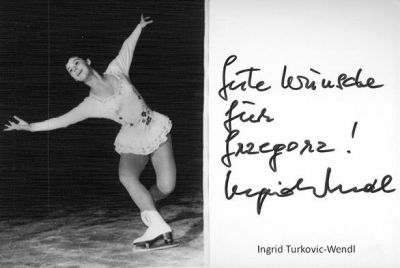 Gute Wünsche
für
Grzegorz!
Ingrid Wendl
Ingrid Turkovic-Wendl